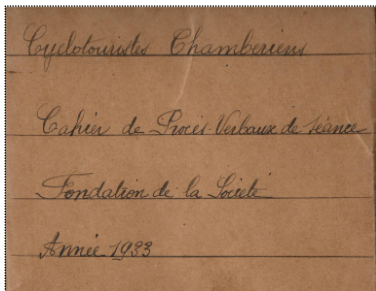 Cyclotouristes Chambériens
Cahier de Procès-Verbaux de séance
Fondation de la Société
Année 1933